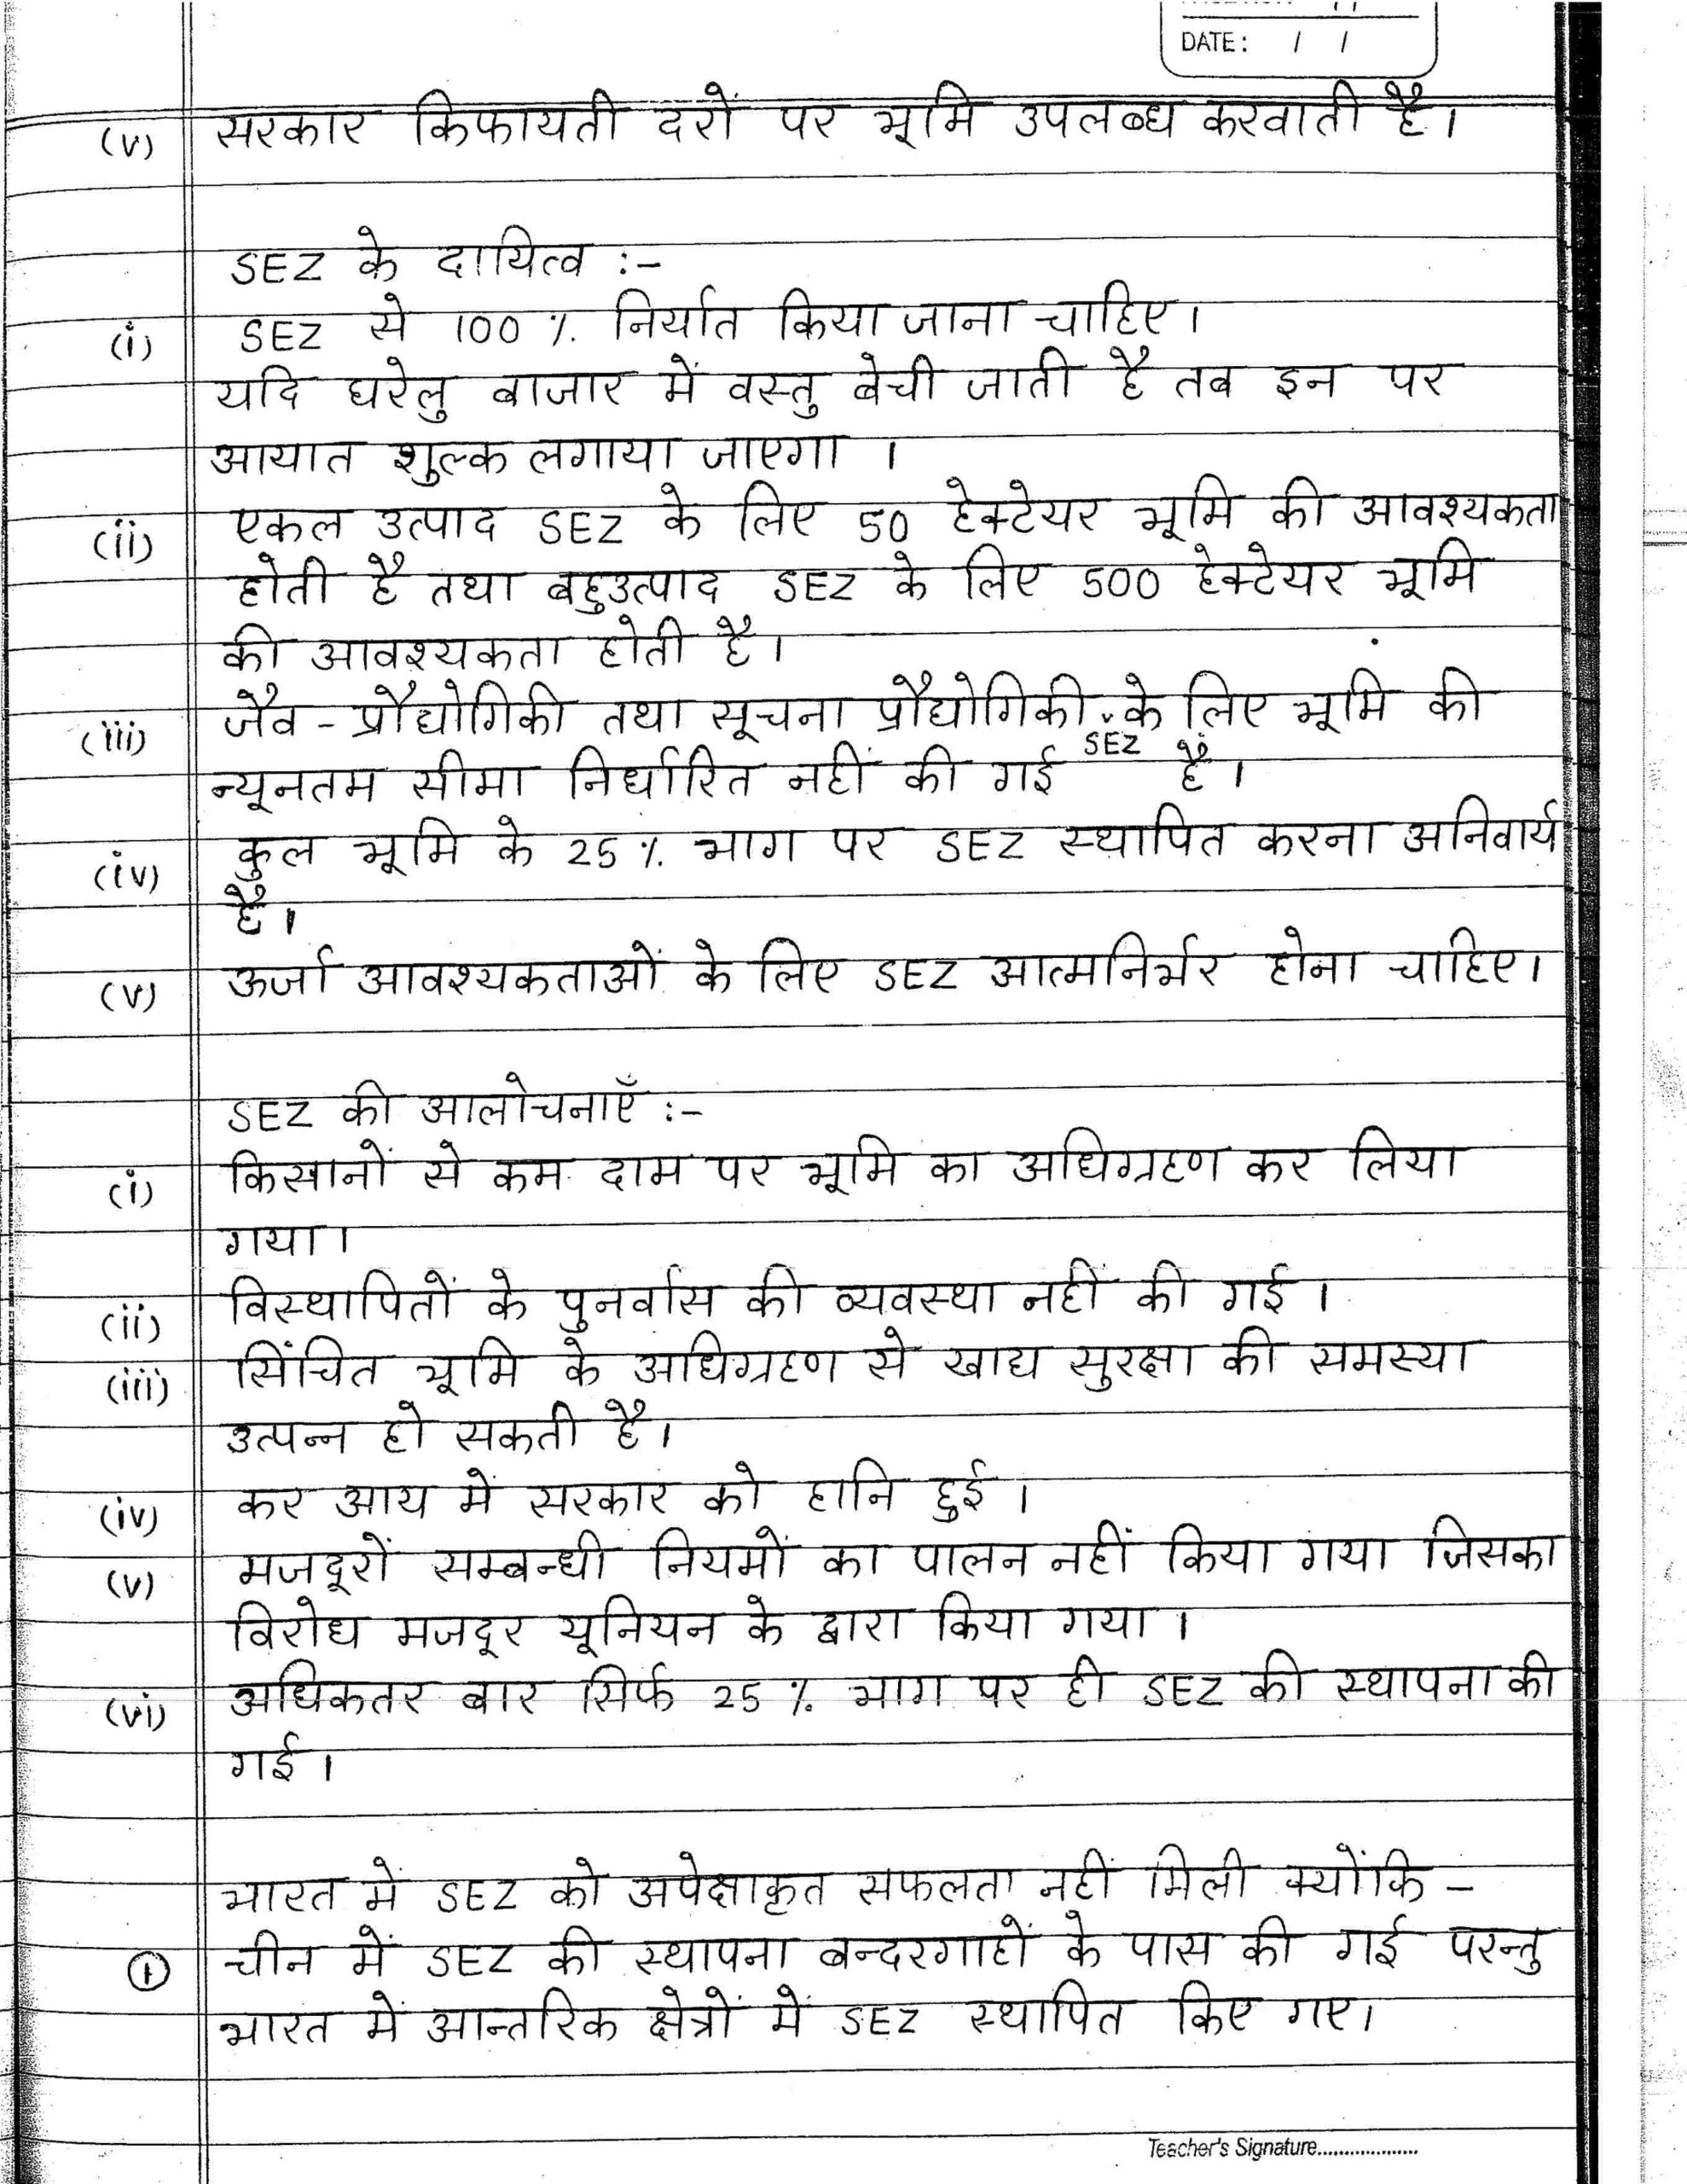 DATE: / /
(v) सरकार किफायती दरों पर भूमि उपलब्ध करवाती है।
SEZ के दायित्व :-
(i) SEZ से 100 % निर्यात किया जाना चाहिए।
यदि घरेलु बाजार में वस्तु बेची जाती है तब इन पर
आयात शुल्क लगाया जाएगा ।
(ii) एकल उत्पाद SEZ के लिए 50 हेक्टेयर भूमि की आवश्यकता
होती है तथा बहुउत्पाद SEZ के लिए 500 हेक्टेयर भूमि
की आवश्यकता होती है।
(iii) जैव - प्रौद्योगिकी तथा सूचना प्रौद्योगिकी SEZ के लिए भूमि की
न्यूनतम सीमा निर्धारित नहीं की गई है।
(iv) कुल भूमि के 25 % भाग पर SEZ स्थापित करना अनिवार्य
है।
(v) ऊर्जा आवश्यकताओं के लिए SEZ आत्मनिर्भर होना चाहिए।
SEZ की आलोचनाएँ :-
(i) किसानों से कम दाम पर भूमि का अधिग्रहण कर लिया
गया।
(ii) विस्थापितों के पुनर्वास की व्यवस्था नहीं की गई ।
(iii) सिंचित भूमि के अधिग्रहण से खाद्य सुरक्षा की समस्या
उत्पन्न हो सकती है।
(iv) कर आय में सरकार को हानि हुई ।
(v) मजदूरों सम्बन्धी नियमों का पालन नहीं किया गया जिसका
विरोध मजदूर यूनियन के द्वारा किया गया ।
(vi) अधिकतर बार सिर्फ 25 % भाग पर ही SEZ की स्थापना की
गई ।
भारत में SEZ को अपेक्षाकृत सफलता नहीं मिली क्योंकि -
① चीन में SEZ की स्थापना बन्दरगाहों के पास की गई परन्तु
भारत में आन्तरिक क्षेत्रों में SEZ स्थापित किए गए।
Teacher's Signature...................